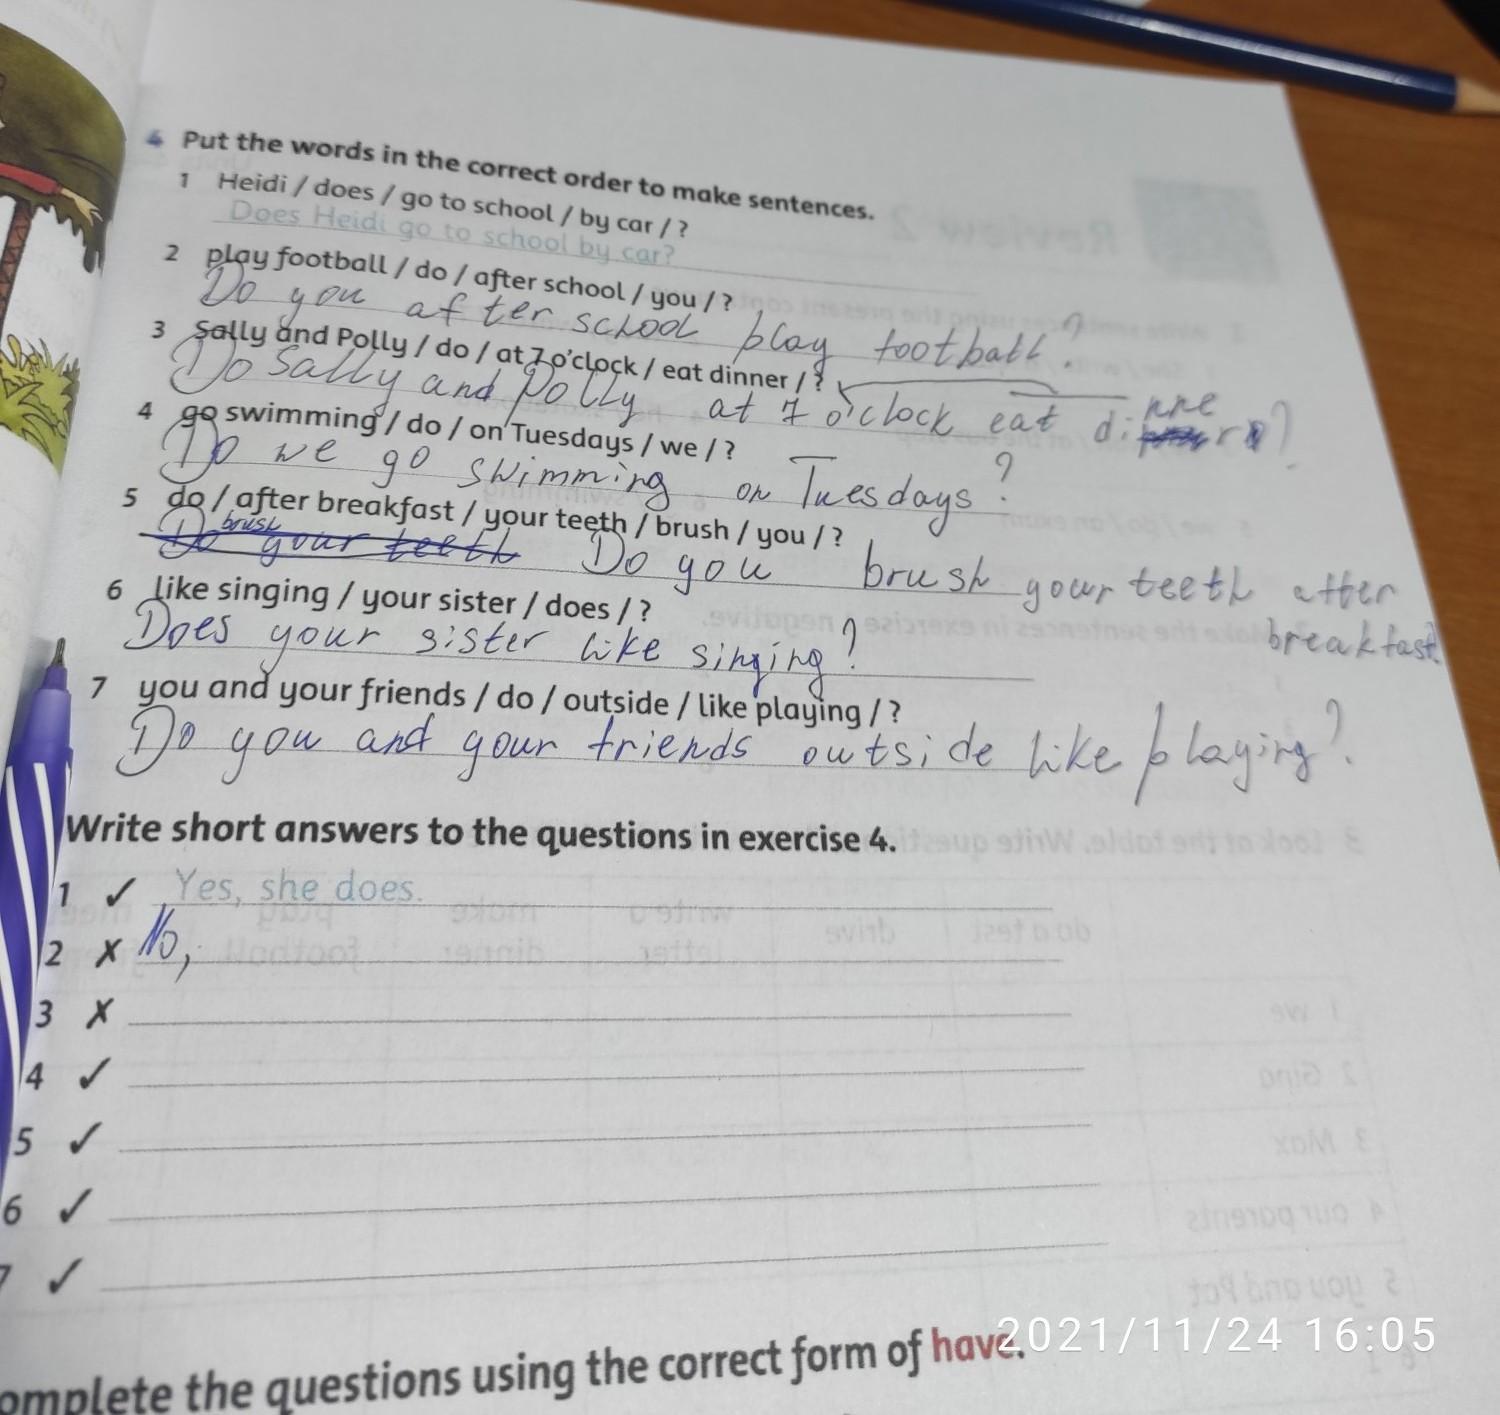 4 Put the words in the correct order to make sentences.
1 Heidi / does / go to school / by car / ?
Does Heidi go to school by car?
2 play football / do / after school / you / ?
Do you after school play football?
3 Sally and Polly / do / at 7 o'clock / eat dinner / ?
Do Sally and Polly at 7 o'clock eat dinner?
4 go swimming / do / on Tuesdays / we / ?
Do we go swimming on Tuesdays?
5 do / after breakfast / your teeth / brush / you / ?
Do brush your teeth Do you brush your teeth after
breakfast?
6 like singing / your sister / does / ?
Does your sister like singing?
7 you and your friends / do / outside / like playing / ?
Do you and your friends outside like playing?
Write short answers to the questions in exercise 4.
1 ✓ Yes, she does.
2 ✗ No,
3 ✗
4 ✓
5 ✓
6 ✓
7 ✓
omplete the questions using the correct form of have.
2021/11/24 16:05